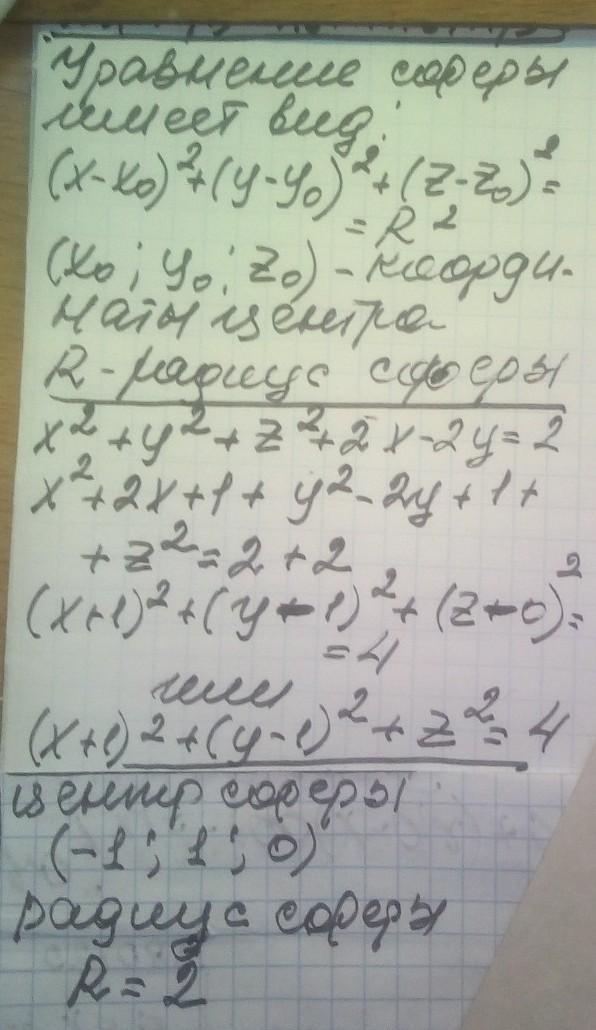 Уравнение сферы
имеет вид:
(x-x₀)²+(y-y₀)²+(z-z₀)²=
=R²
(x₀; y₀; z₀) - коорди-
наты центра
R - радиус сферы
x²+y²+z²+2x-2y=2
x²+2x+1+y²-2y+1+
+z²=2+2
(x+1)²+(y-1)²+(z-0)²=
=4
или
(x+1)²+(y-1)²+z²=4
центр сферы
(-1; 1; 0)
радиус сферы
R=2